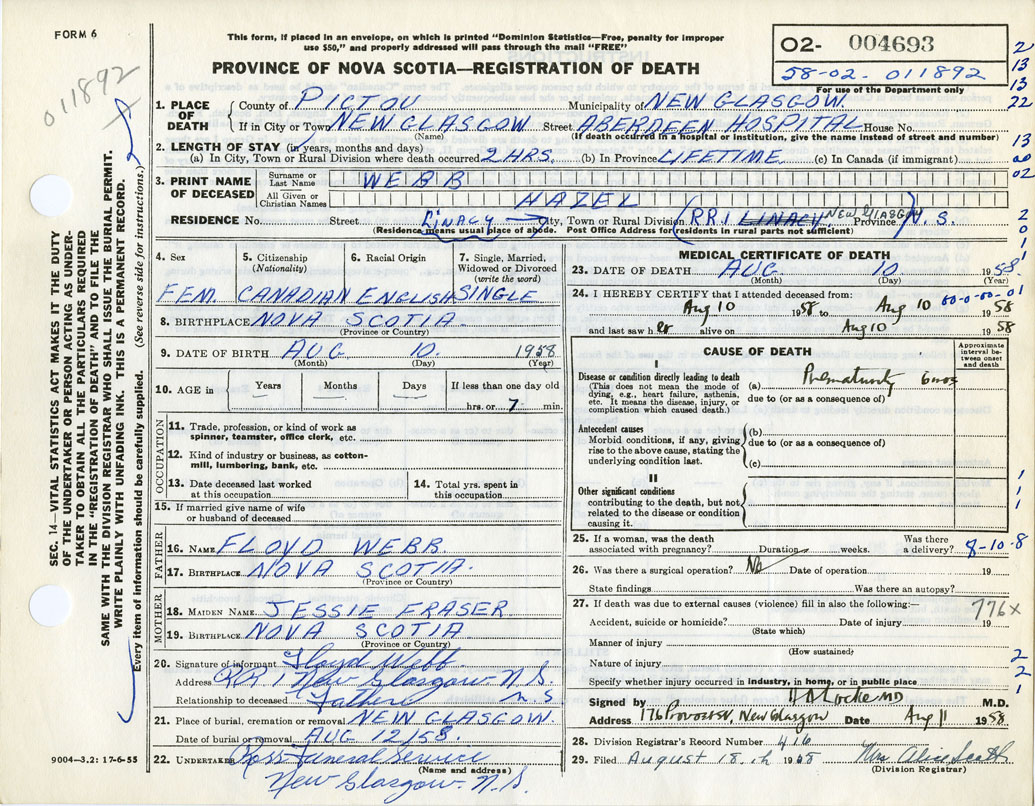 FORM 6
This form, if placed in an envelope, on which is printed "Dominion Statistics—Free, penalty for improper
use $50," and properly addressed will pass through the mail "FREE"
PROVINCE OF NOVA SCOTIA—REGISTRATION OF DEATH
O2- 004693
58-02-011892
For use of the Department only
011892
SEC. 14—VITAL STATISTICS ACT MAKES IT THE DUTY
OF THE UNDERTAKER OR PERSON ACTING AS UNDER-
TAKER TO OBTAIN ALL THE PARTICULARS REQUIRED
IN THE "REGISTRATION OF DEATH" AND TO FILE THE
SAME WITH THE DIVISION REGISTRAR WHO SHALL ISSUE THE BURIAL PERMIT.
WRITE PLAINLY WITH UNFADING INK. THIS IS A PERMANENT RECORD.
Every item of information should be carefully supplied. (See reverse side for instructions.)
1. PLACE OF DEATH County of PICTOU Municipality of NEW GLASGOW
If in City or Town NEW GLASGOW Street ABERDEEN HOSPITAL House No.
(Name) (If death occurred in a hospital or institution, give the name instead of street and number)
2. LENGTH OF STAY (in years, months and days)
(a) In City, Town or Rural Division where death occurred 2 HRS. (b) In Province LIFETIME (c) In Canada (if immigrant)
3. PRINT NAME OF DECEASED Surname or Last Name WEBB
All Given or Christian Names HAZEL
RESIDENCE No. Street Linacy City, Town or Rural Division (RR.1 LINACY, NEW GLASGOW Province) N.S.
(Residence means usual place of abode. Post Office Address for residents in rural parts not sufficient)
4. Sex 5. Citizenship (Nationality) 6. Racial Origin 7. Single, Married, Widowed or Divorced (write the word)
FEM. CANADIAN ENGLISH SINGLE
8. BIRTHPLACE NOVA SCOTIA.
(Province or Country)
9. DATE OF BIRTH AUG 10. 1958
(Month) (Day) (Year)
10. AGE in Years Months Days If less than one day old
hrs. or 7 min.
OCCUPATION
11. Trade, profession, or kind of work as
spinner, teamster, office clerk, etc.
12. Kind of industry or business, as cotton-
mill, lumbering, bank, etc.
13. Date deceased last worked
at this occupation
14. Total yrs. spent in
this occupation
15. If married give name of wife
or husband of deceased
FATHER
16. NAME FLOYD WEBB.
17. BIRTHPLACE NOVA SCOTIA.
(Province or Country)
MOTHER
18. MAIDEN NAME JESSIE FRASER
19. BIRTHPLACE NOVA SCOTIA
(Province or Country)
20. Signature of informant Floyd Webb.
Address RR 1 New Glasgow N.S.
Relationship to deceased Father N S
21. Place of burial, cremation or removal NEW GLASGOW.
Date of burial or removal AUG 12/58.
22. UNDERTAKER Ross Funeral Service
(Name and address)
New Glasgow N.S.
9004—3.2: 17-6-55
MEDICAL CERTIFICATE OF DEATH
23. DATE OF DEATH AUG 10 1958
(Month) (Day) (Year)
24. I HEREBY CERTIFY that I attended deceased from: 00-0-00-01
Aug 10 1958 to Aug 10 1958
and last saw her alive on Aug 10 1958
CAUSE OF DEATH
Approximate interval between onset and death
I
Disease or condition directly leading to death
(This does not mean the mode of
dying, e.g., heart failure, asthenia,
etc. It means the disease, injury, or
complication which caused death.)
(a) Prematurity 6 mos
due to (or as a consequence of)
Antecedent causes
Morbid conditions, if any, giving
rise to the above cause, stating the
underlying condition last.
(b)
due to (or as a consequence of)
(c)
II
Other significant conditions
contributing to the death, but not
related to the disease or condition
causing it.
25. If a woman, was the death
associated with pregnancy? Duration weeks. Was there a delivery? 8-10-8
26. Was there a surgical operation? No Date of operation 19
State findings Was there an autopsy?
27. If death was due to external causes (violence) fill in also the following:— 776x
Accident, suicide or homicide? Date of injury 19
(State which)
Manner of injury
(How sustained)
Nature of injury
Specify whether injury occurred in industry, in home, or in public place
Signed by H D Locke MD M.D.
Address 176 Provost St, New Glasgow Date Aug 11 1958
28. Division Registrar's Record Number 416
29. Filed August 18th 1958 Mrs Alice Seath
(Division Registrar)
2
13
13
22
13
02
2
0
1
1
1
1
1
2
2
1